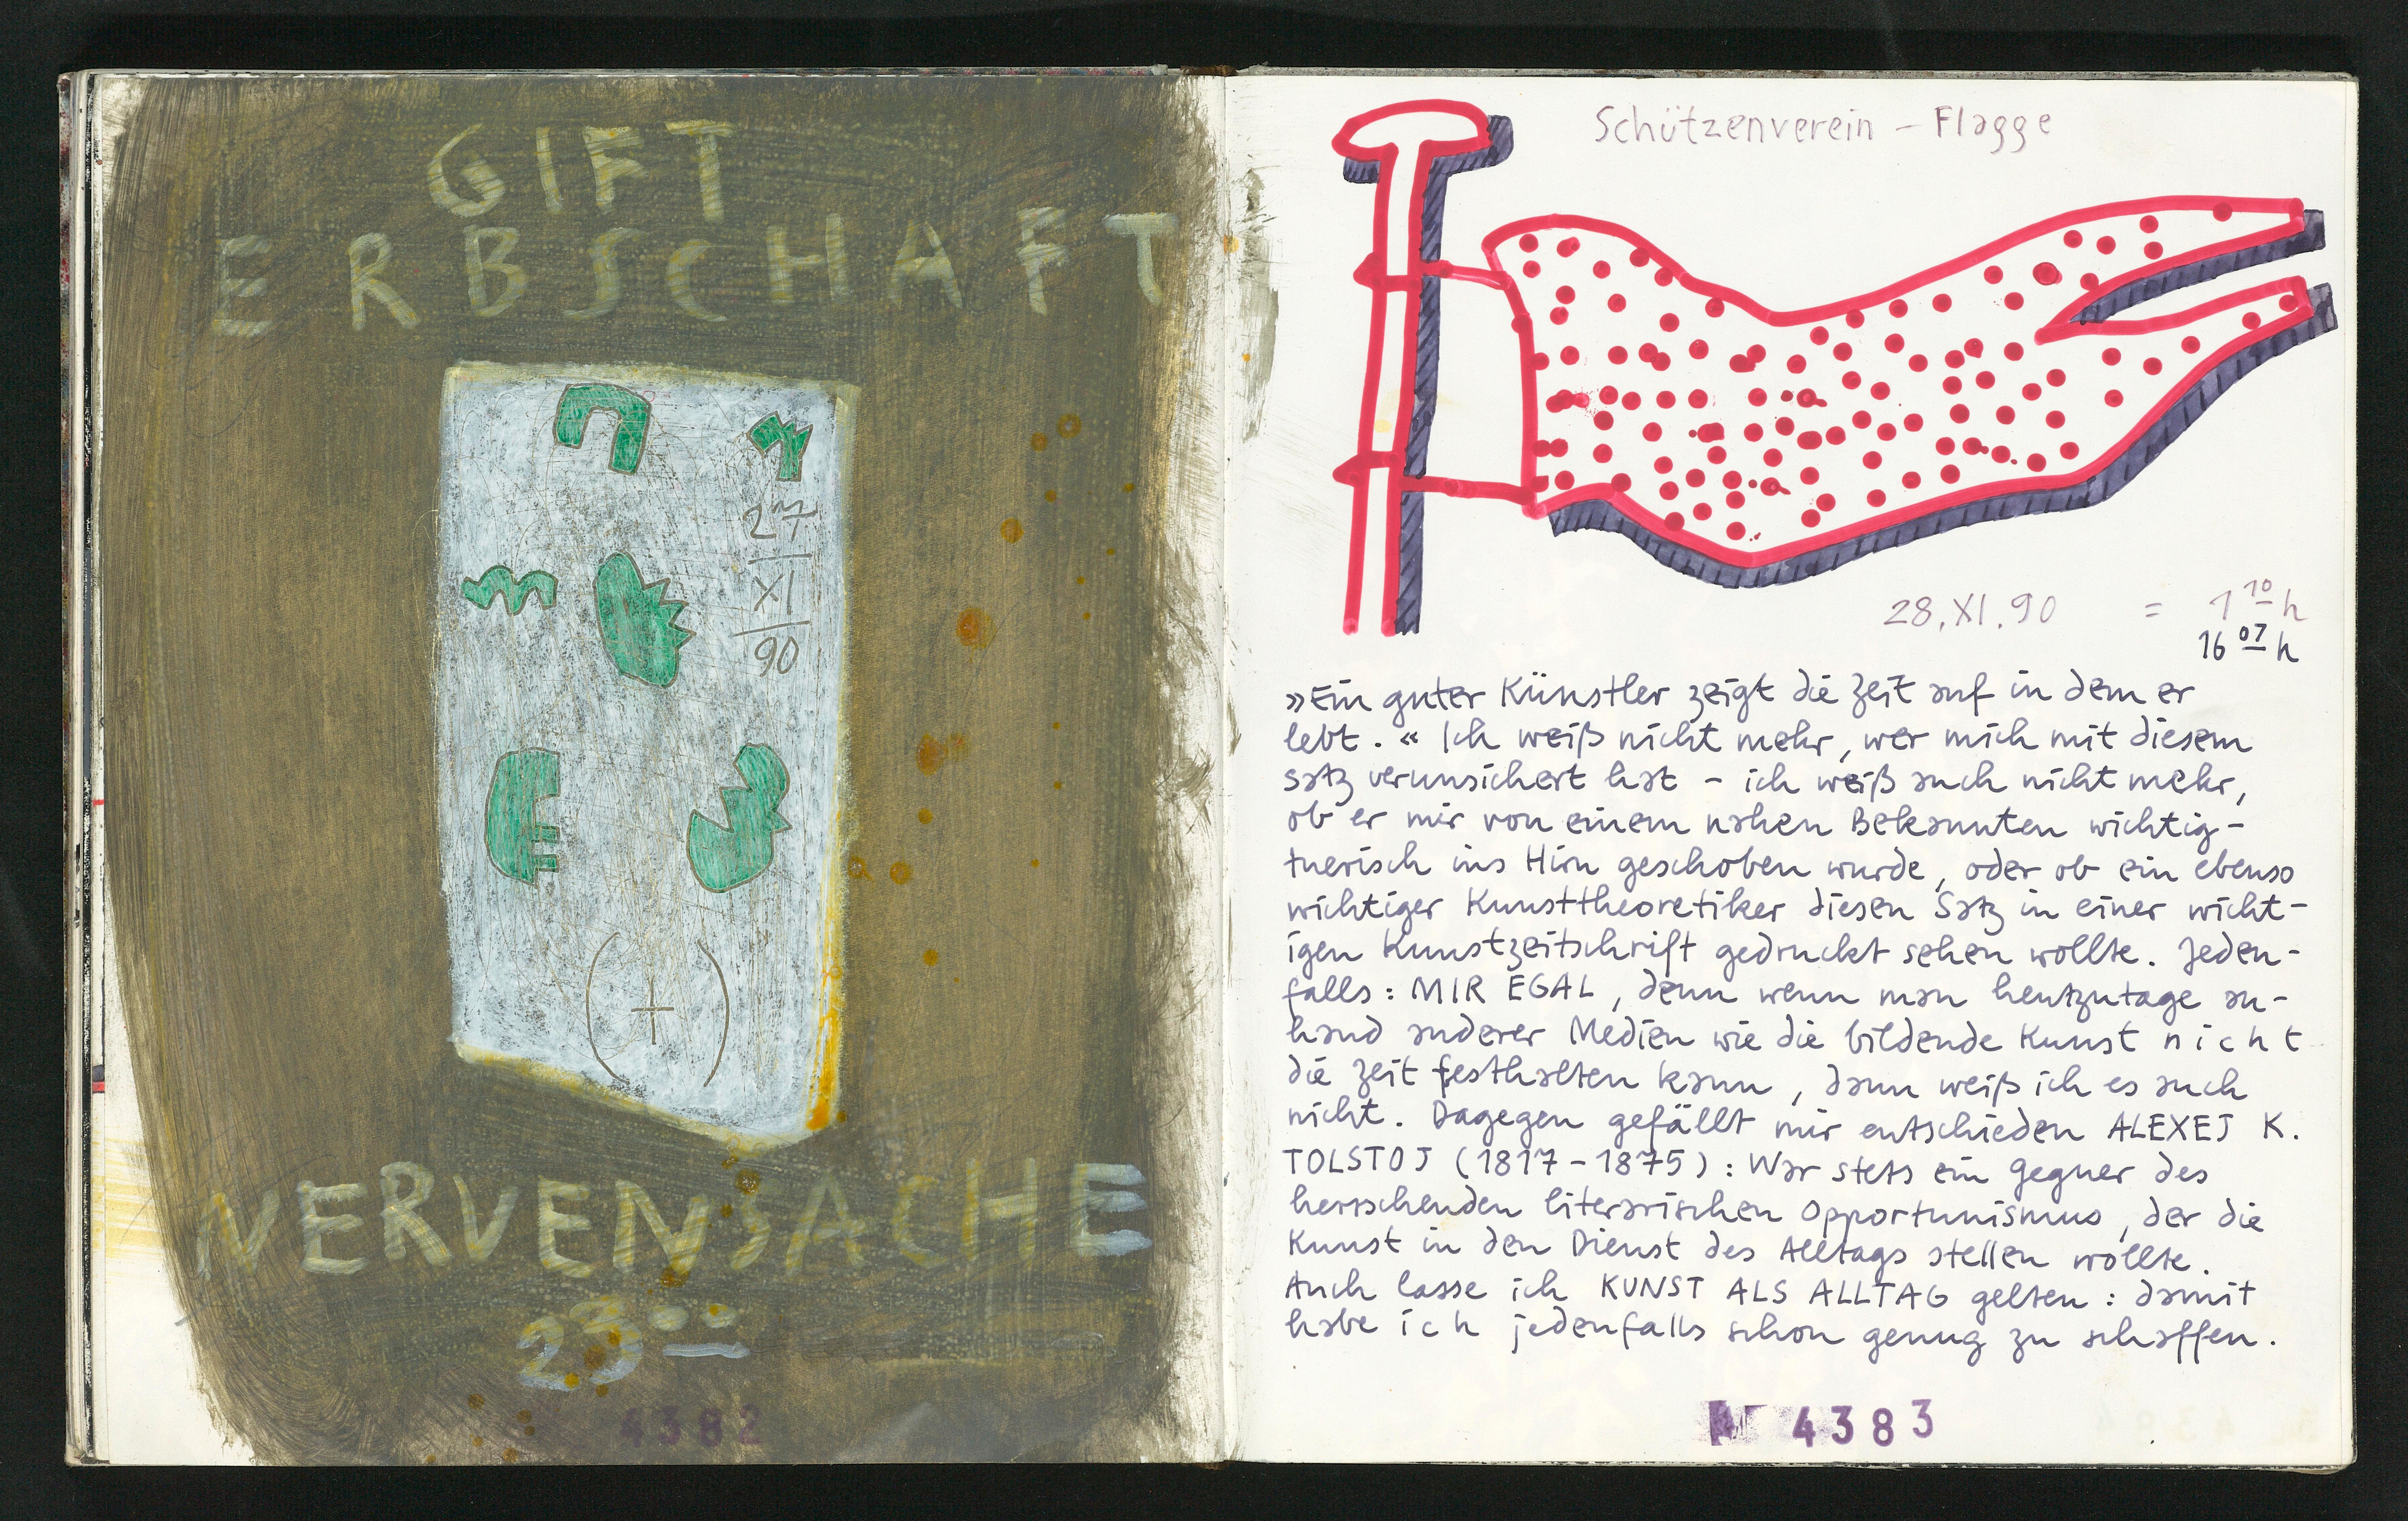 GIFT
ERBSCHAFT
27
XI
90
(+)
NERVENSACHE
23 00
4382
Schützenverein – Flagge
28.XI.90 = 1 10 h
16 07 h
»Ein guter Künstler zeigt die Zeit auf in dem er
lebt.« Ich weiß nicht mehr, wer mich mit diesem
Satz verunsichert hat – ich weiß auch nicht mehr,
ob er mir von einem nahen Bekannten wichtig-
tuerisch ins Hirn geschoben wurde, oder ob ein ebenso
wichtiger Kunsttheoretiker diesen Satz in einer wicht-
igen Kunstzeitschrift gedruckt sehen wollte. Jeden-
falls: MIR EGAL, denn wenn man heutzutage an-
hand anderer Medien wie die bildende Kunst nicht
die Zeit festhalten kann, dann weiß ich es auch
nicht. Dagegen gefällt mir entschieden ALEXEJ K.
TOLSTOJ (1817–1875): War stets ein Gegner des
herrschenden literarischen Opportunismus, der die
Kunst in den Dienst des Alltags stellen wollte.
Auch lasse ich KUNST ALS ALLTAG gelten: damit
habe ich jedenfalls schon genug zu schaffen.
No 4383